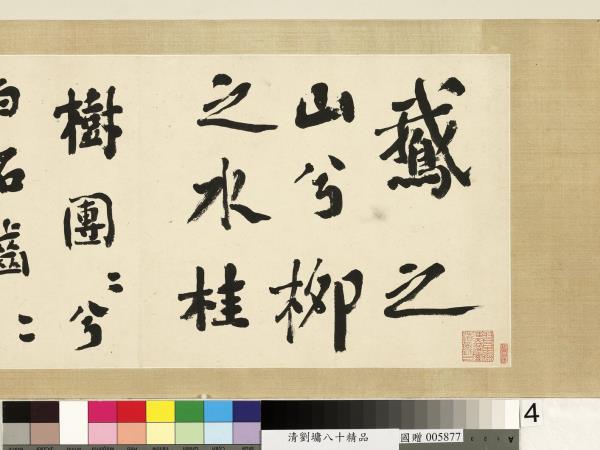 鵞之
山兮柳
之水桂
樹團〻兮
白石齒〻
4
清劉墉八十精品
國贈 005877